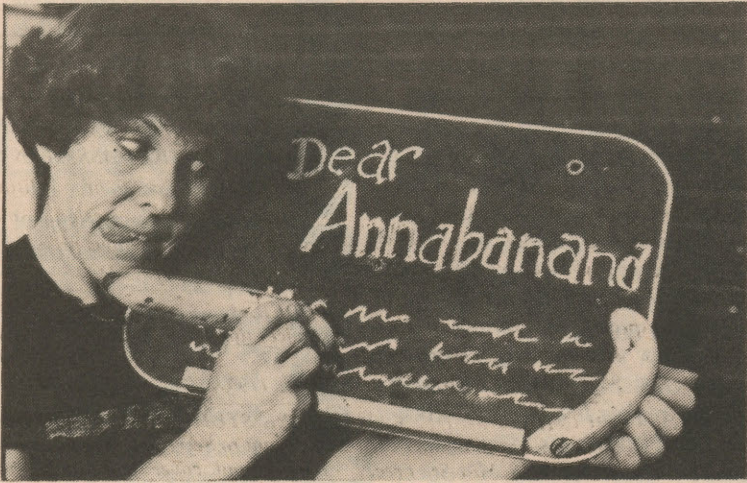 Dear
Annabanana